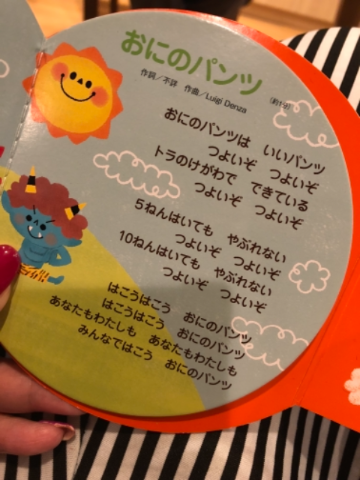 おにのパンツ
(約1分)
作詞／不詳　作曲／Luigi Denza
おにのパンツは　いいパンツ
つよいぞ　つよいぞ
トラのけがわで　できている
つよいぞ　つよいぞ
5ねんはいても　やぶれない
つよいぞ　つよいぞ
10ねんはいても　やぶれない
つよいぞ　つよいぞ
はこうはこう　おにのパンツ
はこうはこう　おにのパンツ
あなたもわたしも　あなたもわたしも
みんなではこう　おにのパンツ